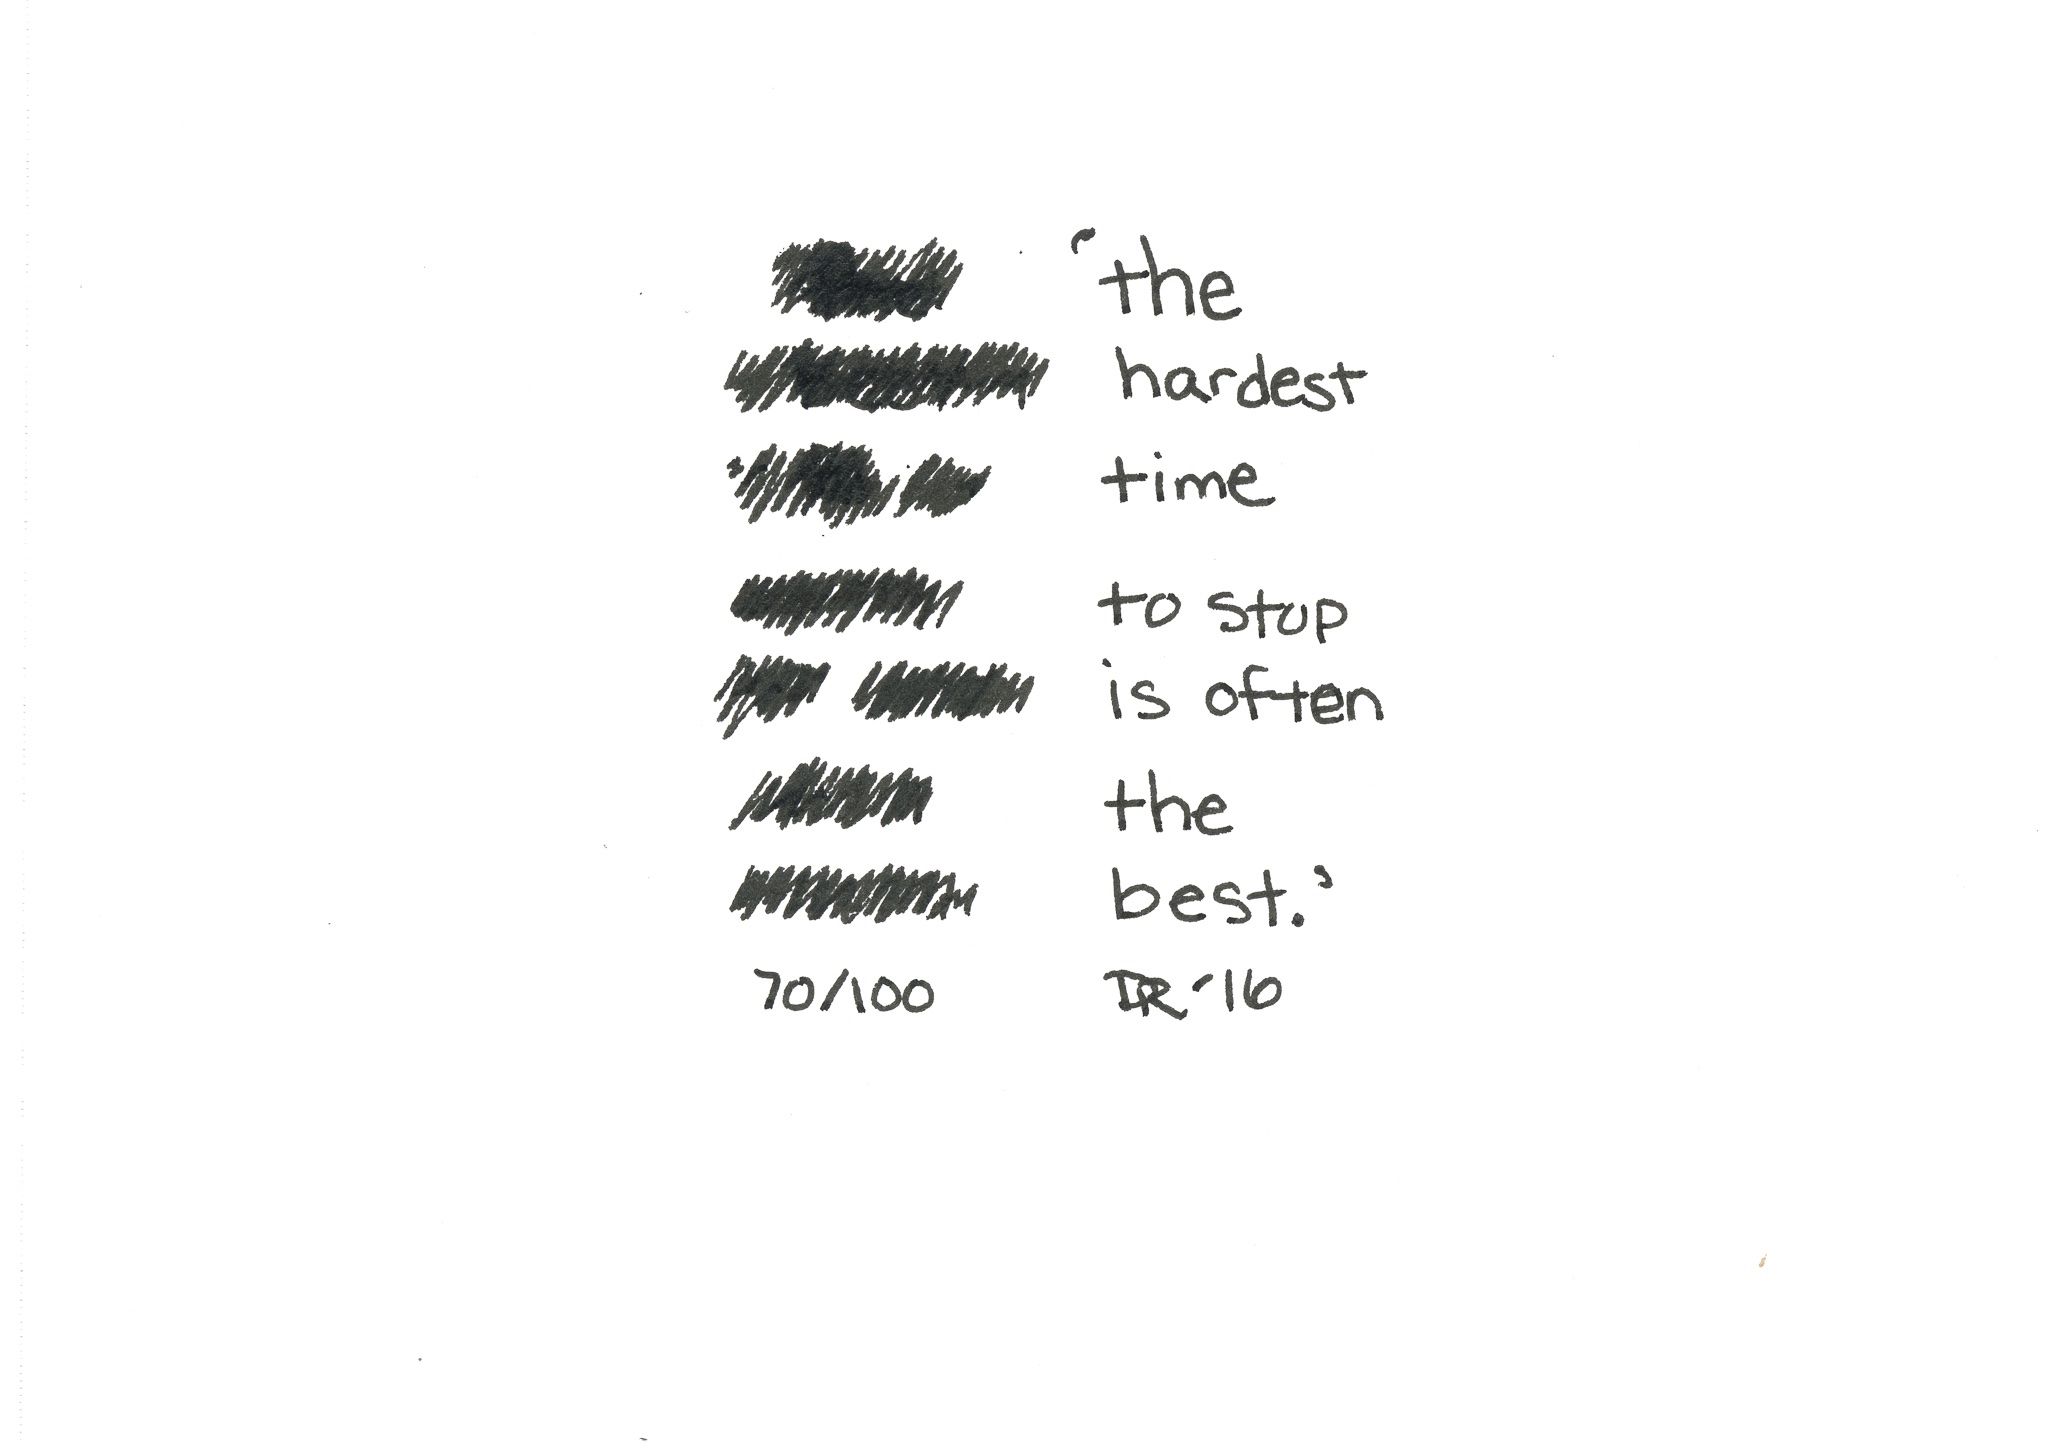 'the
hardest
time
to stop
is often
the
best.'
70/100 DR '16